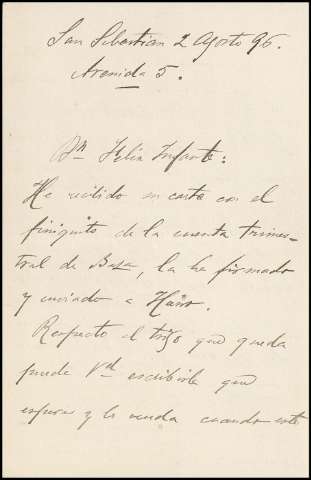 San Sebastian 2 Agosto 96.
Avenida 5.
Dn Felix Infante:
He recibido su carta con el
finiquito de la cuenta trimes-
tral de Baza, la he firmado
y enviado a
Respecto al trigo que queda
puede Vd escribirle que
espere y lo venda cuando este